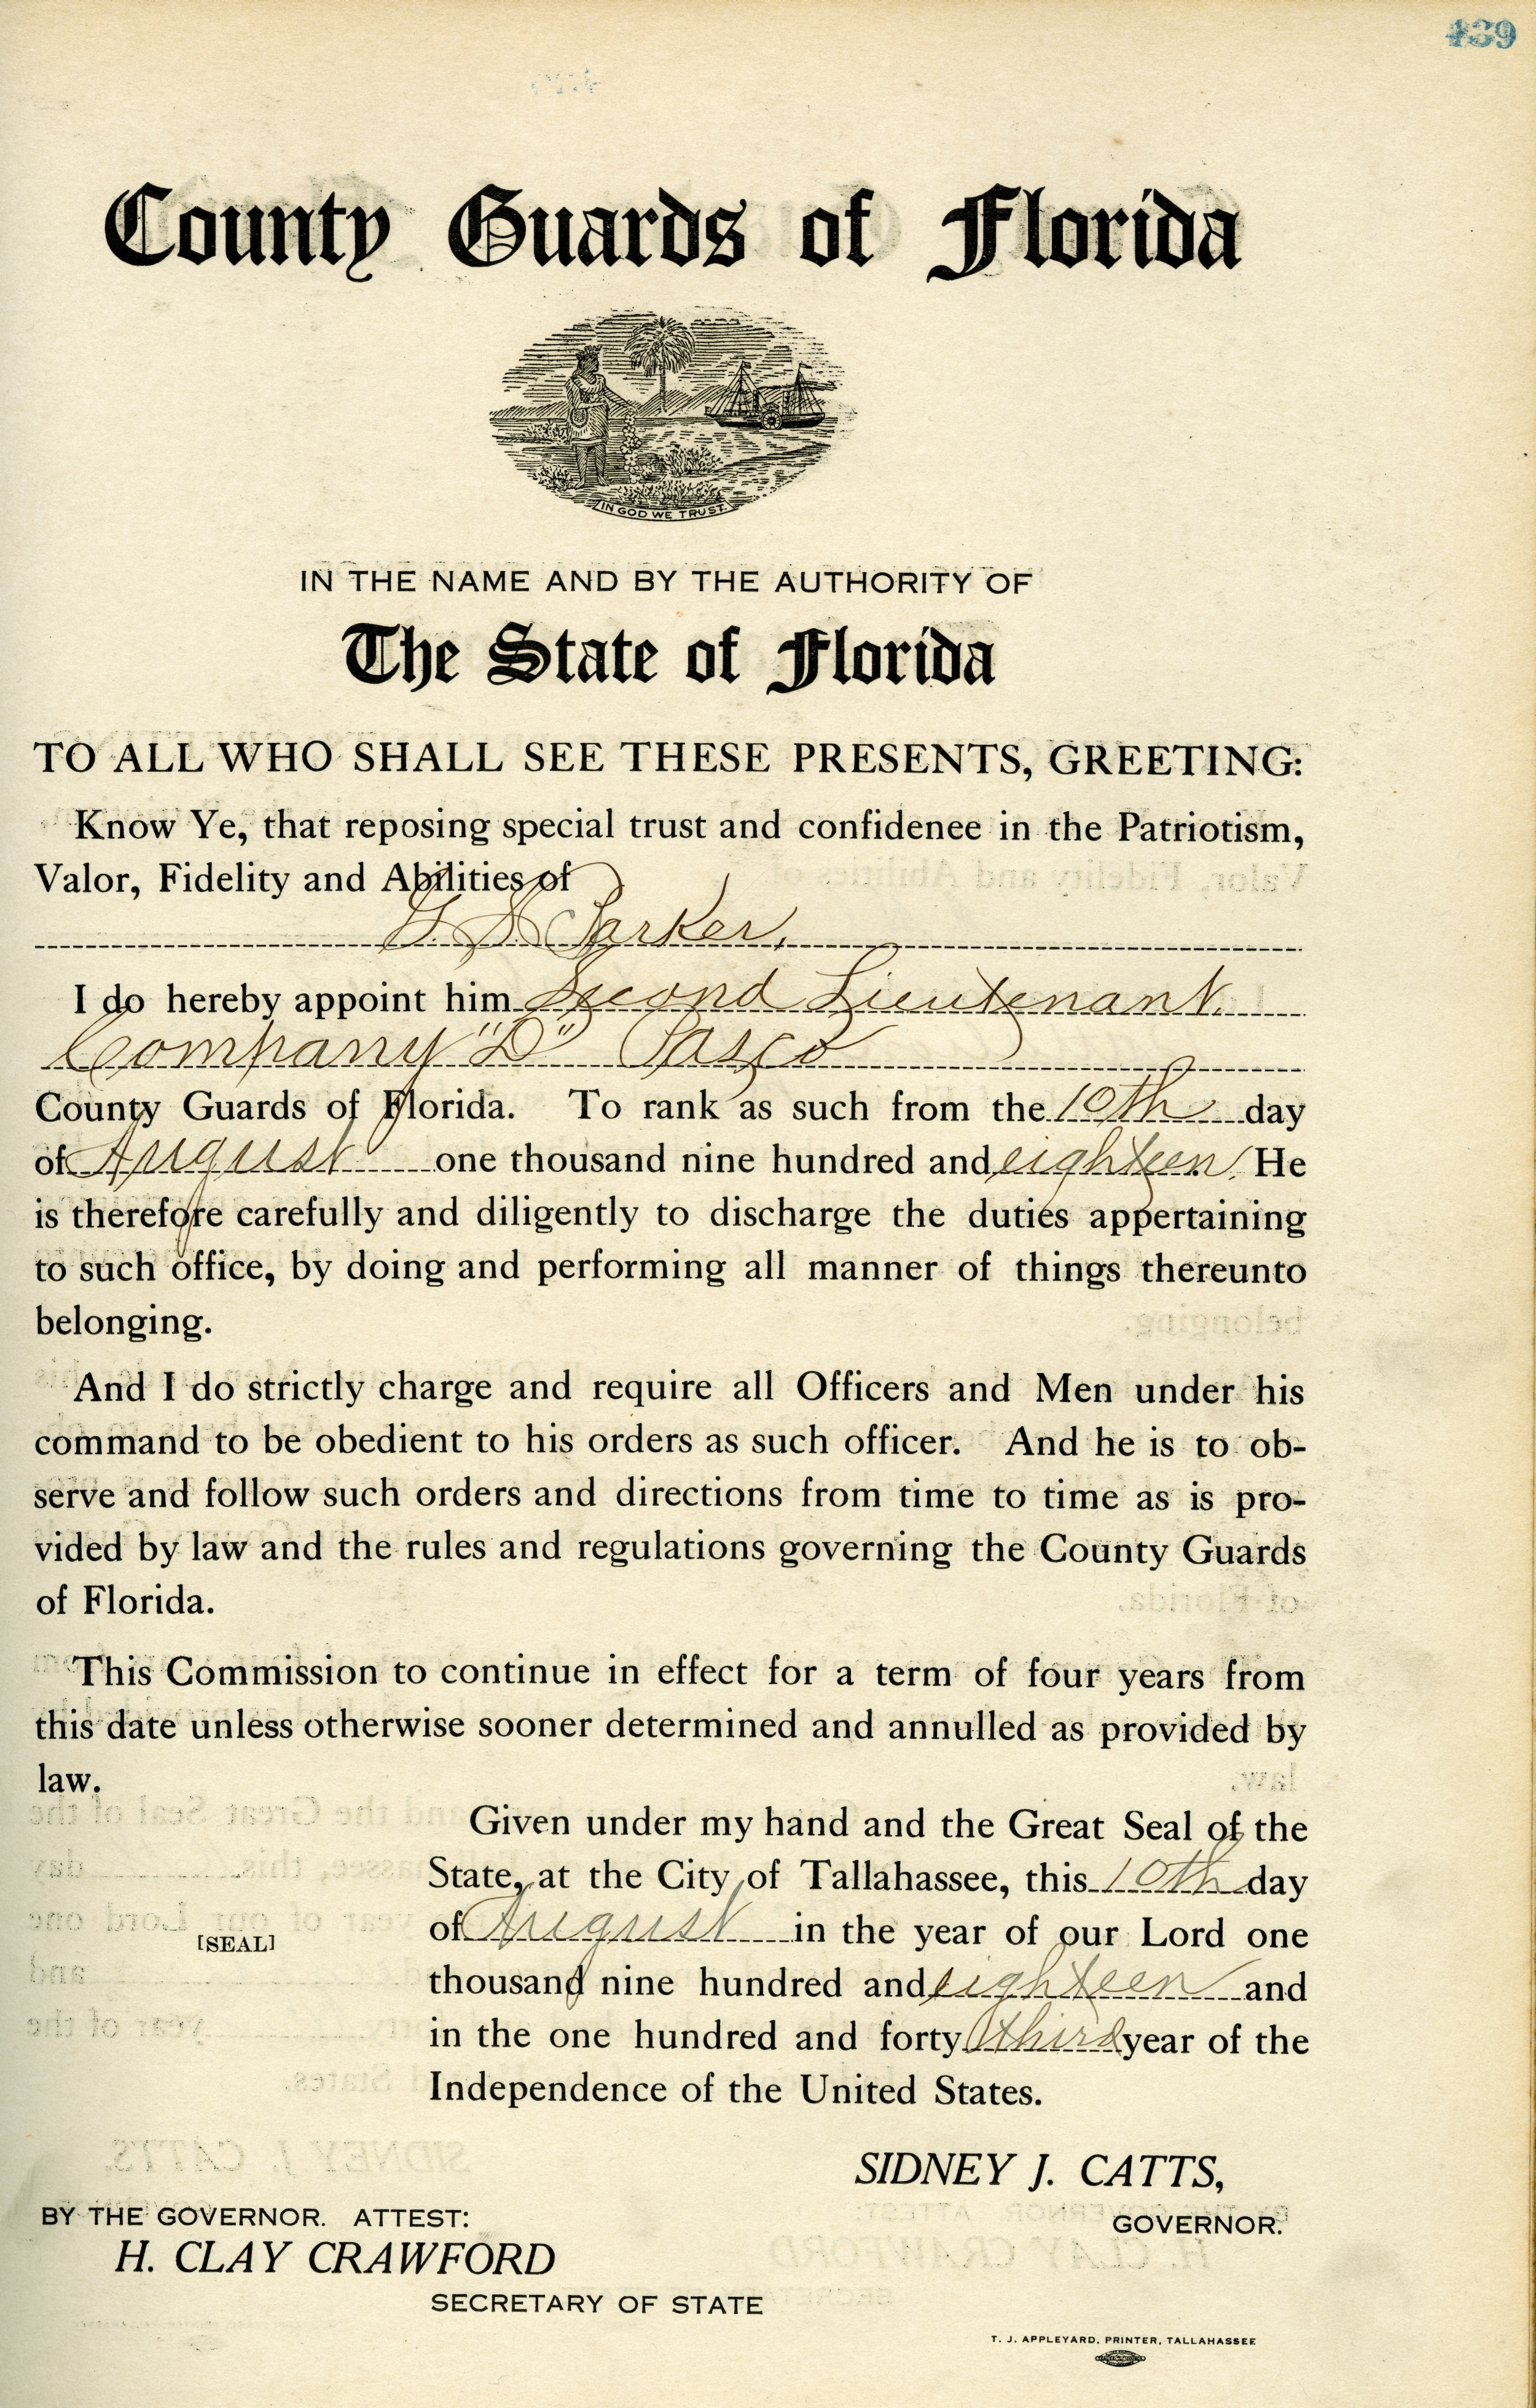 439
County Guards of Florida
IN GOD WE TRUST.
IN THE NAME AND BY THE AUTHORITY OF
The State of Florida
TO ALL WHO SHALL SEE THESE PRESENTS, GREETING:
Know Ye, that reposing special trust and confidenee in the Patriotism,
Valor, Fidelity and Abilities of
Parker,
I do hereby appoint him Second Lieutenant.
Company "D" Pasco
County Guards of Florida. To rank as such from the 10th day
of August one thousand nine hundred and eighteen. He
is therefore carefully and diligently to discharge the duties appertaining
to such office, by doing and performing all manner of things thereunto
belonging.
And I do strictly charge and require all Officers and Men under his
command to be obedient to his orders as such officer. And he is to ob-
serve and follow such orders and directions from time to time as is pro-
vided by law and the rules and regulations governing the County Guards
of Florida.
This Commission to continue in effect for a term of four years from
this date unless otherwise sooner determined and annulled as provided by
law.
Given under my hand and the Great Seal of the
State, at the City of Tallahassee, this 10th day
of August in the year of our Lord one
[SEAL]
thousand nine hundred and eighteen and
in the one hundred and forty third year of the
Independence of the United States.
SIDNEY J. CATTS,
GOVERNOR.
BY THE GOVERNOR. ATTEST:
H. CLAY CRAWFORD
SECRETARY OF STATE
T. J. APPLEYARD, PRINTER, TALLAHASSEE